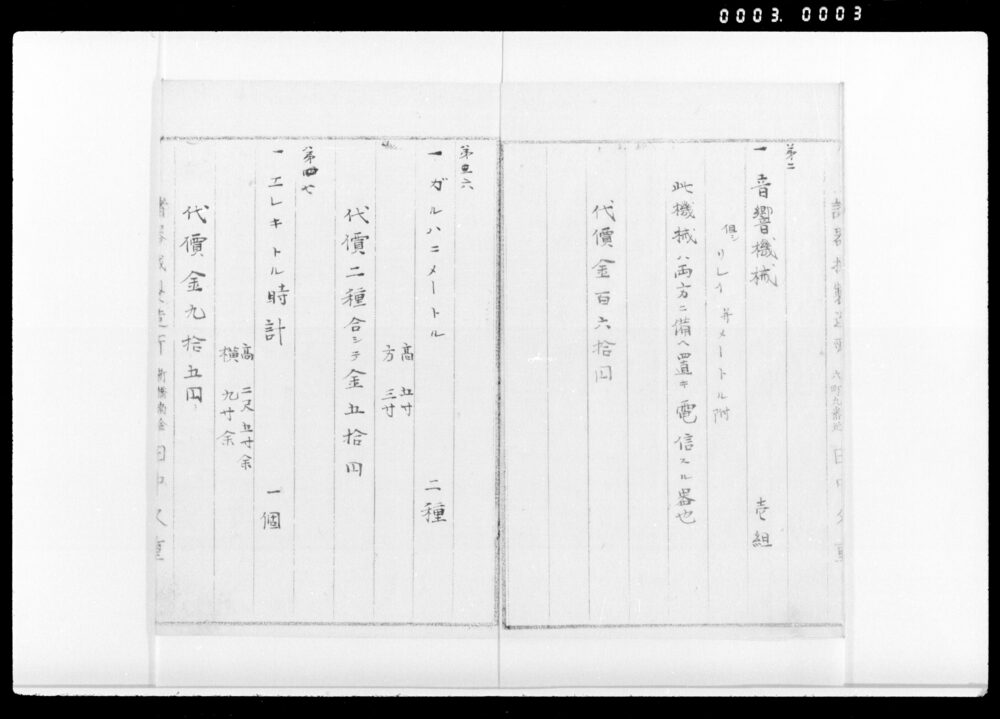 0003. 0003
第二
一 音響機械 壱組
但シ リレイ 并メートル附
此機械ハ両方ニ備ヘ置キ電信スル器也
代價金百六拾円
第五六
一 ガルハニメートル 二種
高 五寸
方 三寸
代價二種合シテ金五拾円
第四七
一 エレキトル時計 一個
高 二尺五寸余
横 九寸余
代價金九拾五円
田中久重